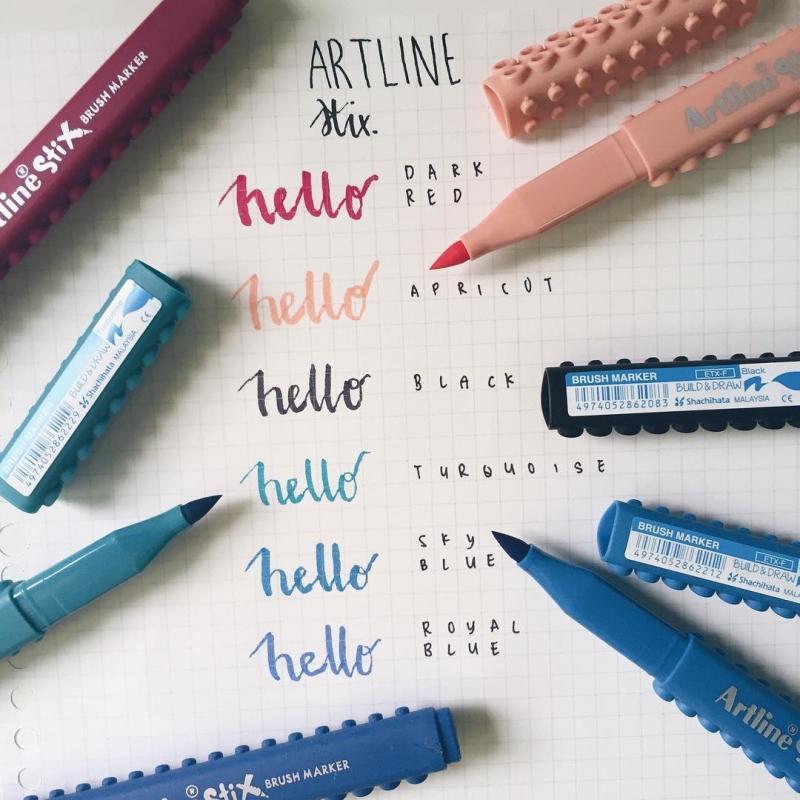 ARTLINE
stix.
hello DARK RED
hello APRICOT
hello BLACK
hello TURQUOISE
hello SKY BLUE
hello ROYAL BLUE
line® Stix BRUSH MARKER
Artline
BRUSH MARKER ETX-F Black
BUILD & DRAW
4974052862083 Shachihata MALAYSIA CE
Turquoise
BUILD & DRAW
4974052862229 Shachihata MALAYSIA CE
BRUSH MARKER ETX-F
BUILD & DRAW
4974052862212 Shachihata
Artline
® Stix BRUSH MARKER